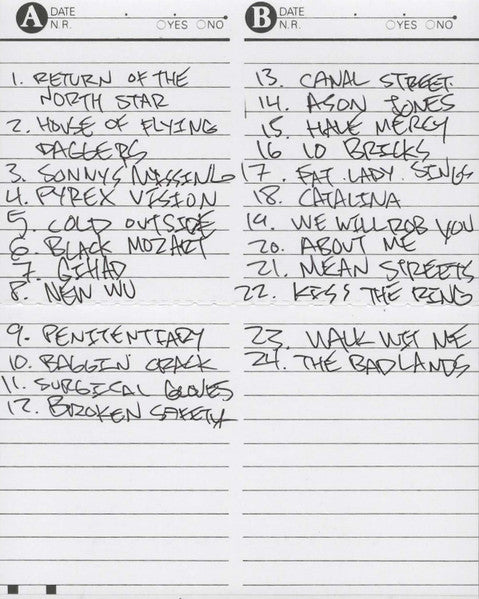 A DATE . .
N.R. ○YES ○NO
1. RETURN OF THE
NORTH STAR
2. HOUSE OF FLYING
DAGGERS
3. SONNYS MISSING
4. PYREX VISION
5. COLD OUTSIDE
6. BLACK MOZART
7. GIHAD
8. NEW WU
9. PENITENTIARY
10. BAGGIN CRACK
11. SURGICAL GLOVES
12. BROKEN SAFETY
B DATE . .
N.R. ○YES ○NO
13. CANAL STREET.
14. ASON JONES
15. HAVE MERCY
16 10 BRICKS
17. FAT LADY SINGS
18. CATALINA
19. WE WILL ROB YOU
20. ABOUT ME
21. MEAN STREETS
22. KISS THE RING
23. WALK WIT ME
24. THE BADLANDS